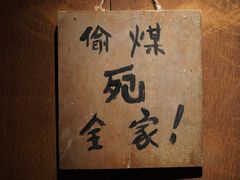 偷煤
死
全家!